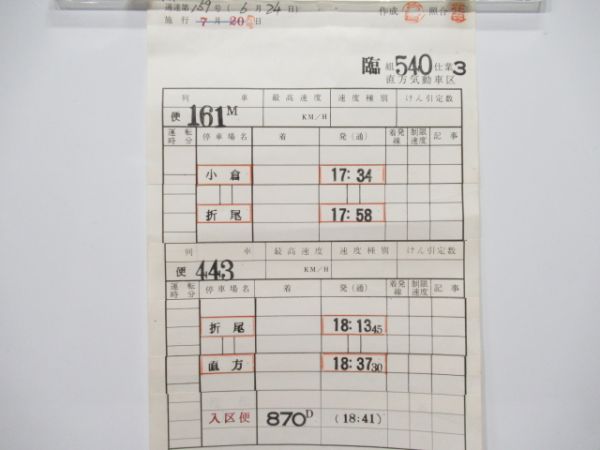 達第159号(6月24日) 作成 照合
施行 7月20日
臨 組 540 仕業 3
直方気動車区
列車 最高速度 速度種別 けん引定数
便 161M KM/H
運転時分 停車場名 着 発(通) 着発線 制限速度 記事
小倉 17:34
折尾 17:58
列車 最高速度 速度種別 けん引定数
便 443 KM/H
運転時分 停車場名 着 発(通) 着発線 制限速度 記事
折尾 18:1345
直方 18:3730
入区便 870D (18:41)